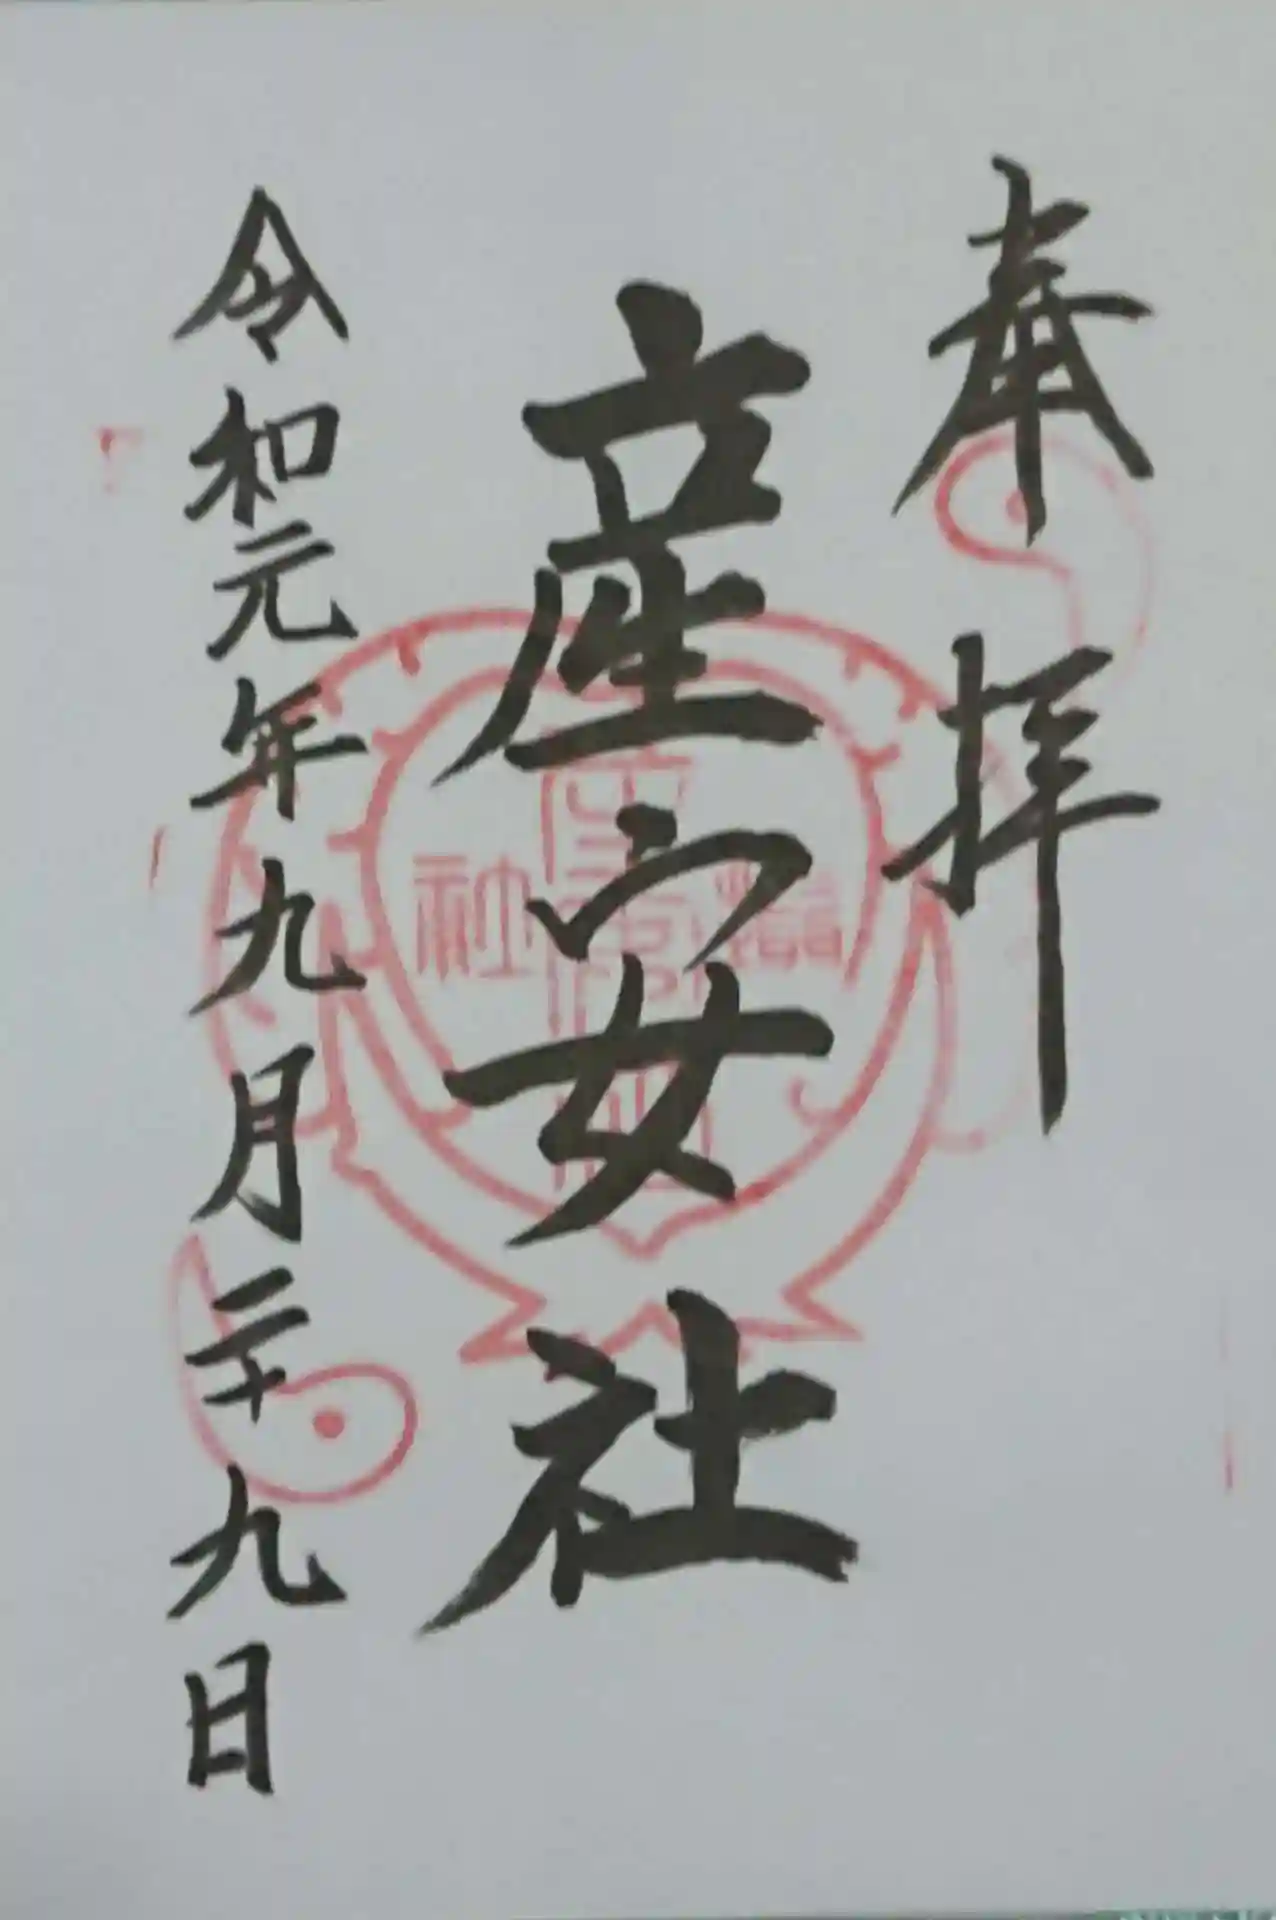 奉拝
産安社
令和元年九月二十九日